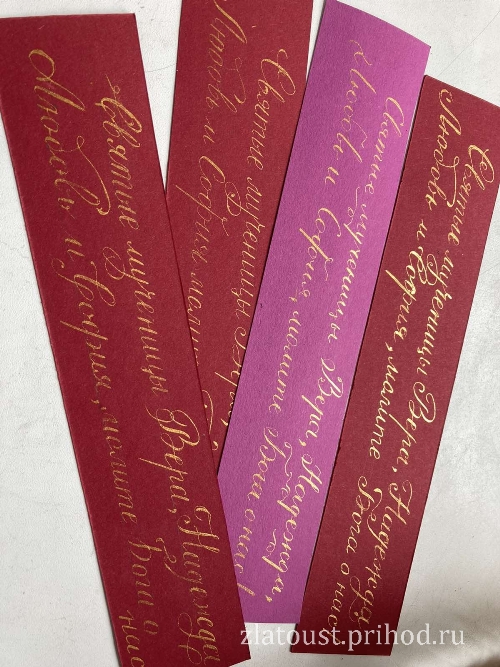 Святые мученицы Вера, Надежда,
Любовь и София, молите Бога о
нас
Святые мученицы Вера,
Любовь и София, моли
Святые мученицы Вера, Надежда,
Любовь и София, молите Бога о нас!
Святые мученицы Вера, Надежда,
Любовь и София, молите
Бога о нас
zlatoust.prihod.ru